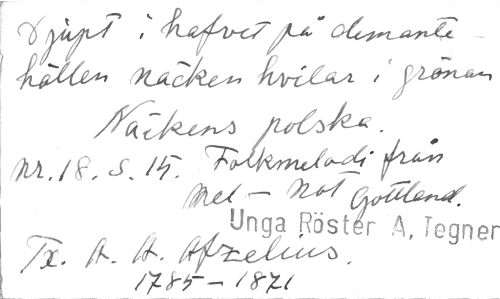 Djupt i hafvet på demante-
hällen näcken hvilar i grönan
Näckens polska.
nr. 18. s. 15. Folkmelodi från
mel - not Gottland.
Unga Röster A. Tegner
Tx. A. A. Afzelius.
1785 - 1871